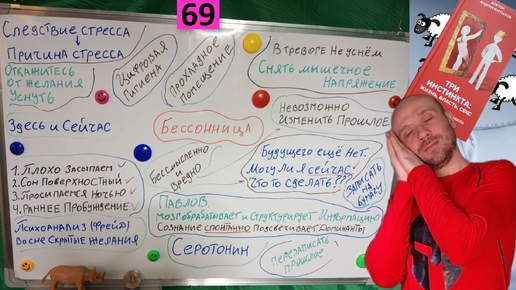 69
Следствие стресса
Причина стресса
Откажитесь
от желания
уснуть
Цифровая
гигиена
Прохладное
помещение
В тревоге не уснём
Снять мышечное
напряжение
Здесь и Сейчас
Бессонница
Невозможно
изменить прошлое
Бессмысленно
и
вредно
Будущего ещё нет.
Могу ли я сейчас
что то сделать???
Записать
на
бумагу
1. Плохо засыпаем
2. Сон поверхностный
3. Просыпаемся ночью
4. Раннее пробуждение
Психоанализ (Фрейд)
Во сне скрытые желания
Павлов
Мозг обрабатывает и структурирует информацию
Сознание спонтанно подсвечивает доминанты
Серотонин
Перезаписать
прошлое
ТРИ
ИНСТИНКТА:
ЖИЗНЬ, ВЛАСТЬ, СЕКС